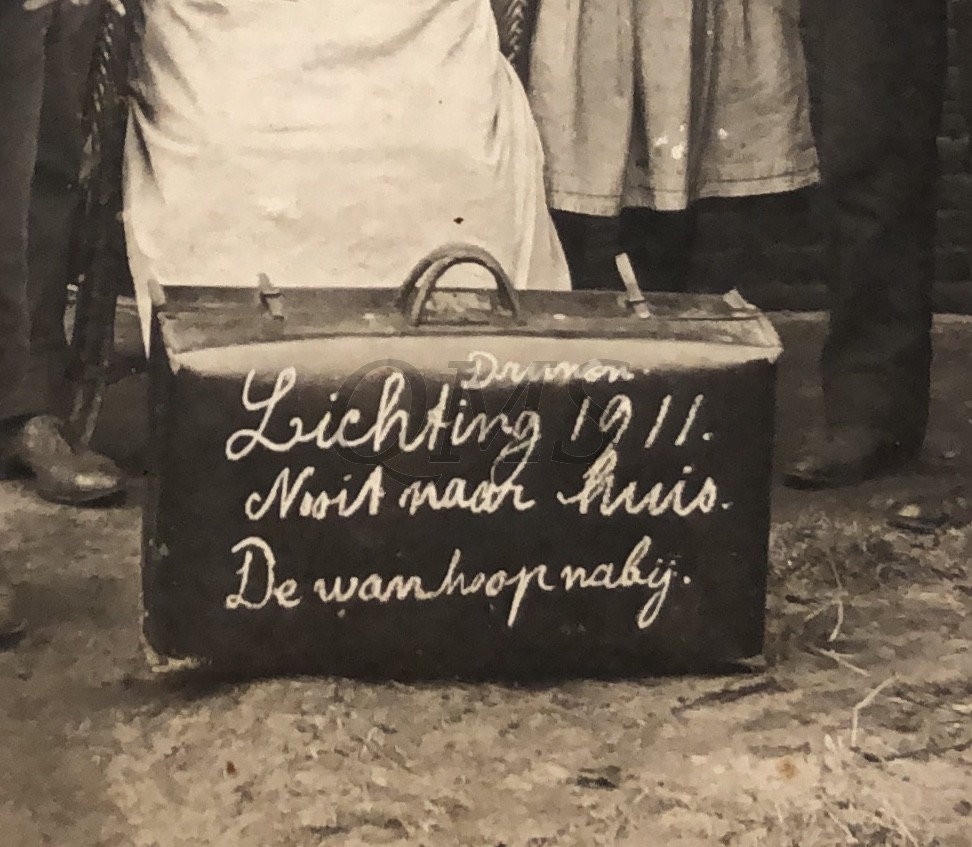 Drunen.
Lichting 1911.
Nooit naar huis.
De wanhoop nabij.
QMS